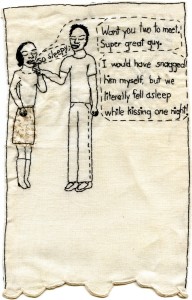 So sleepy.
Want you two to meet.
Super great guy.
I would have snagged
him myself, but we
literally fell asleep
while kissing one night!